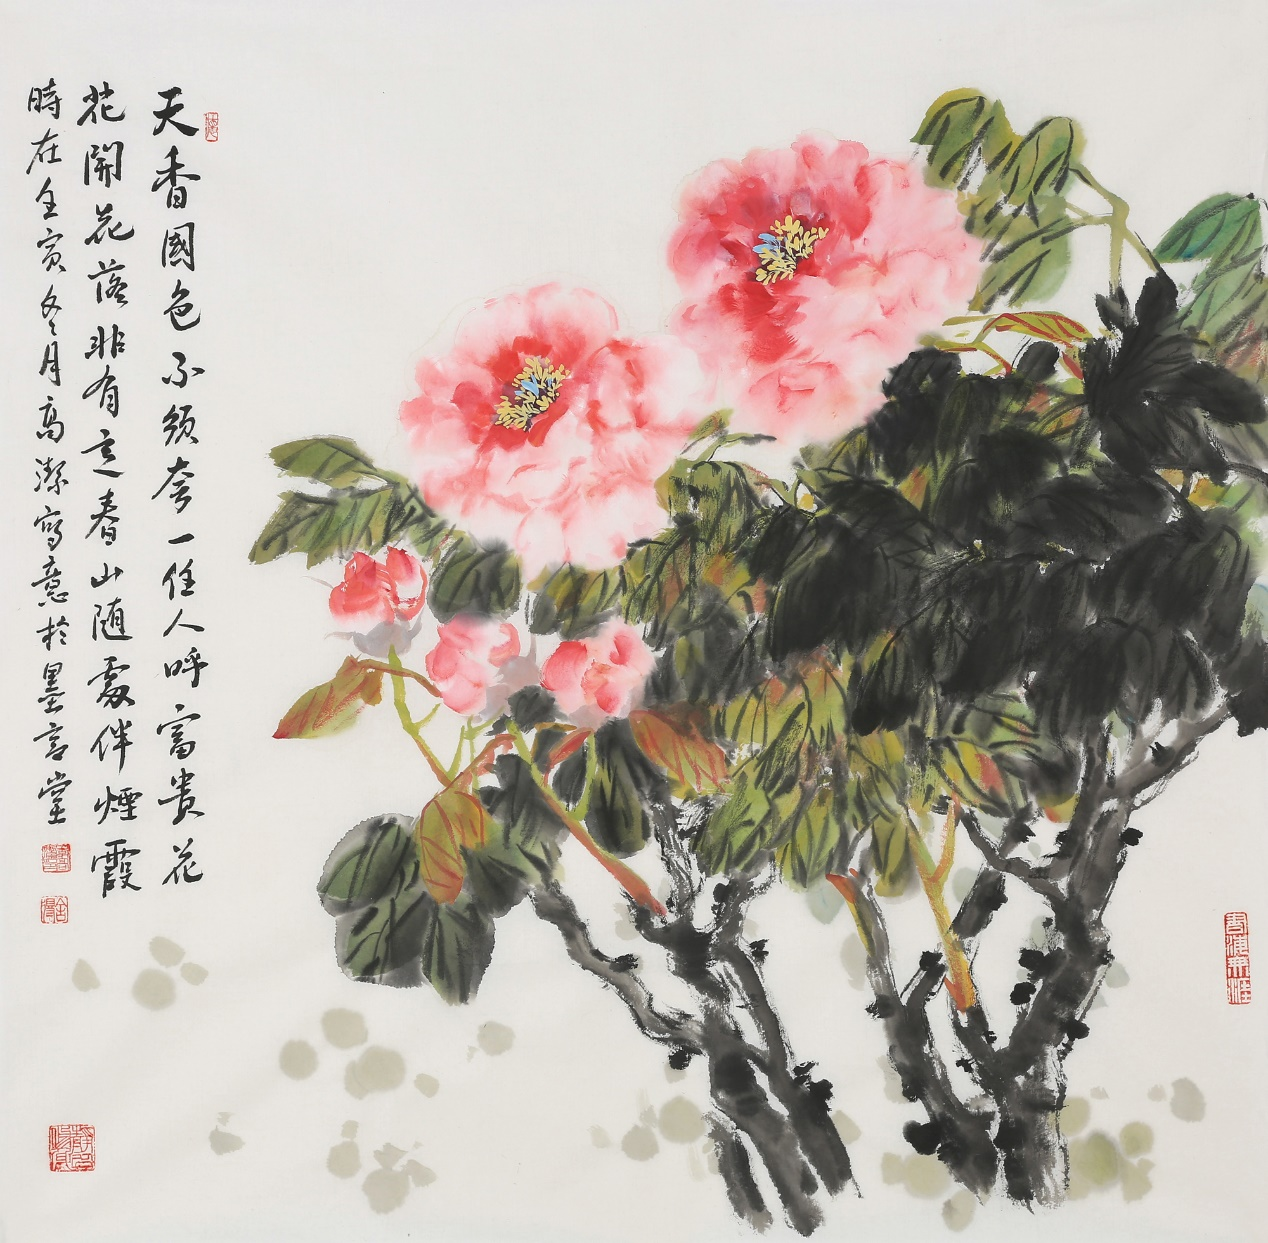 天香國色不須夸一任人呼富貴花
花開花落非有意春山随處伴煙霞
時在壬寅冬月高潔寫意於墨言堂
書海無涯